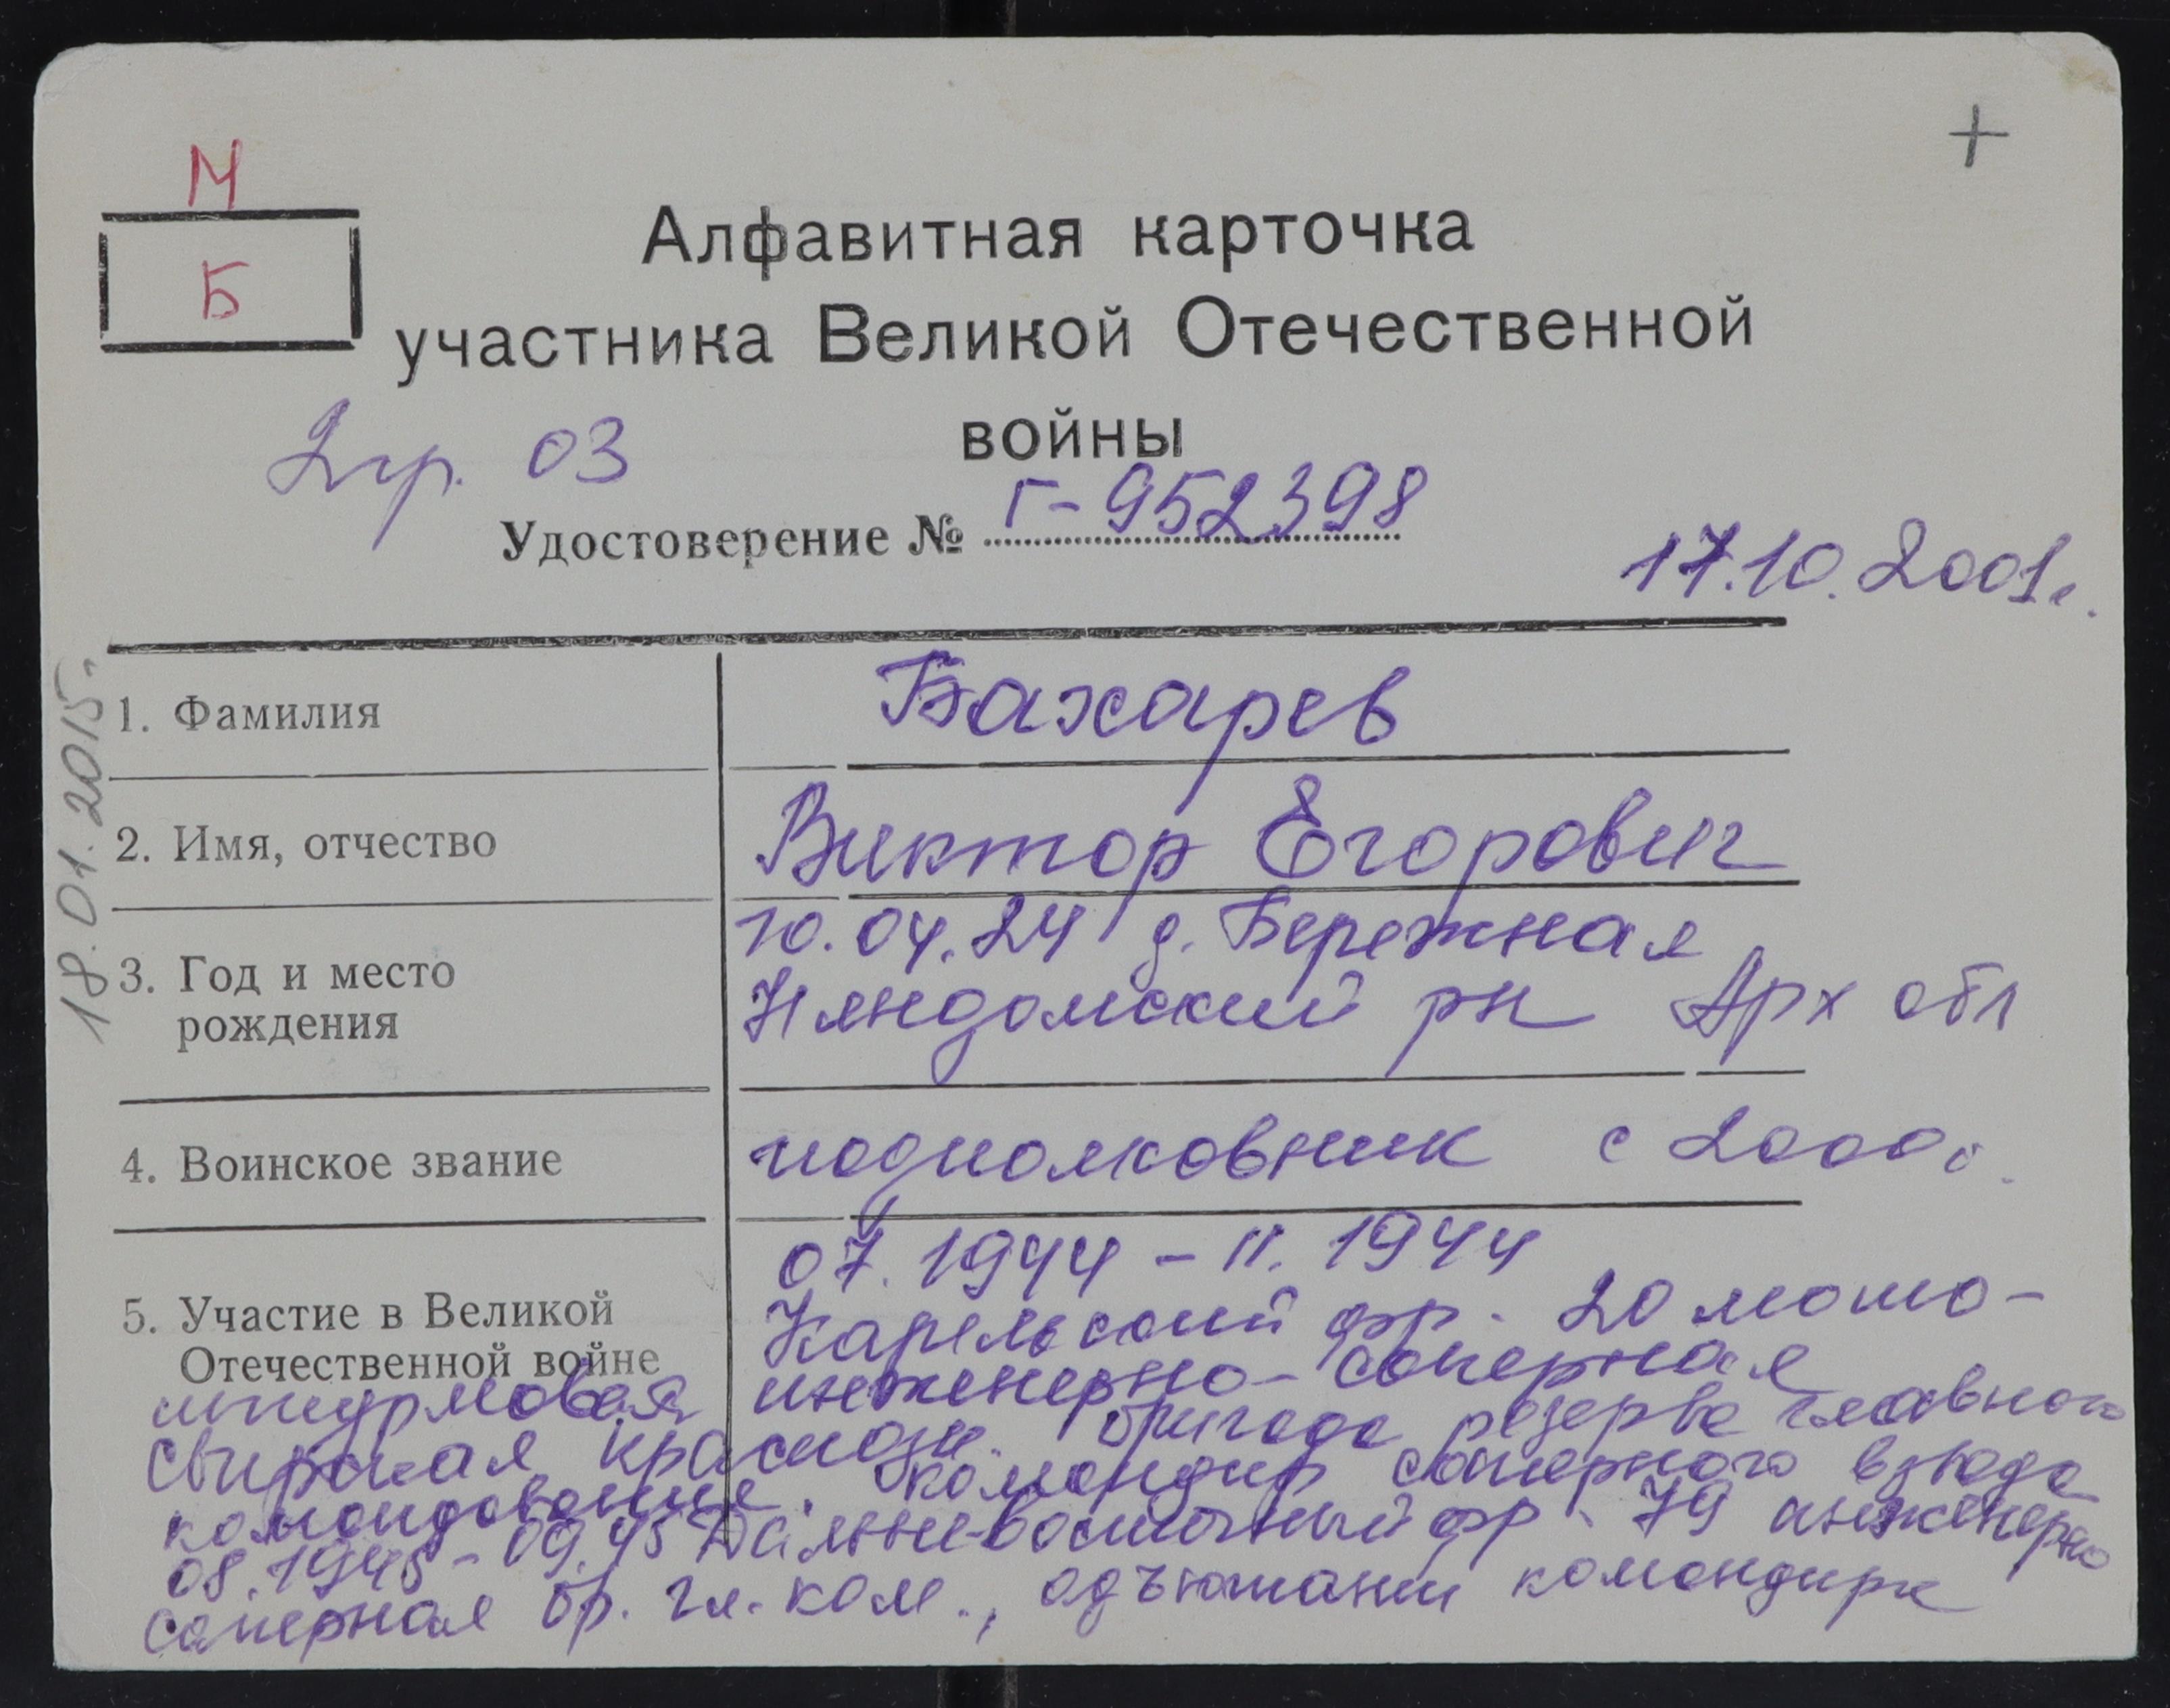 М
+
Б
Алфавитная карточка
участника Великой Отечественной
войны
2гр. 03
Удостоверение № Г-952398
17.10.2001г.
18.01.2015г.
1. Фамилия Бахарев
2. Имя, отчество Виктор Егорович
3. Год и место рождения 10.04.24 д. Бережная
Няндомский рн Арх обл
4. Воинское звание подполковник с 2000г.
5. Участие в Великой Отечественной войне 07.1944 - 11.1944
Карельский фр. 20 мото-
штурмовая инженерно-саперная
Свирская Краснозн. бригада резерва главного
командования. командир саперного взвода
08.1945 - 09.45 Дальневосточный фр. 79 инженерно
саперная бр. гл. ком., адъютант командира